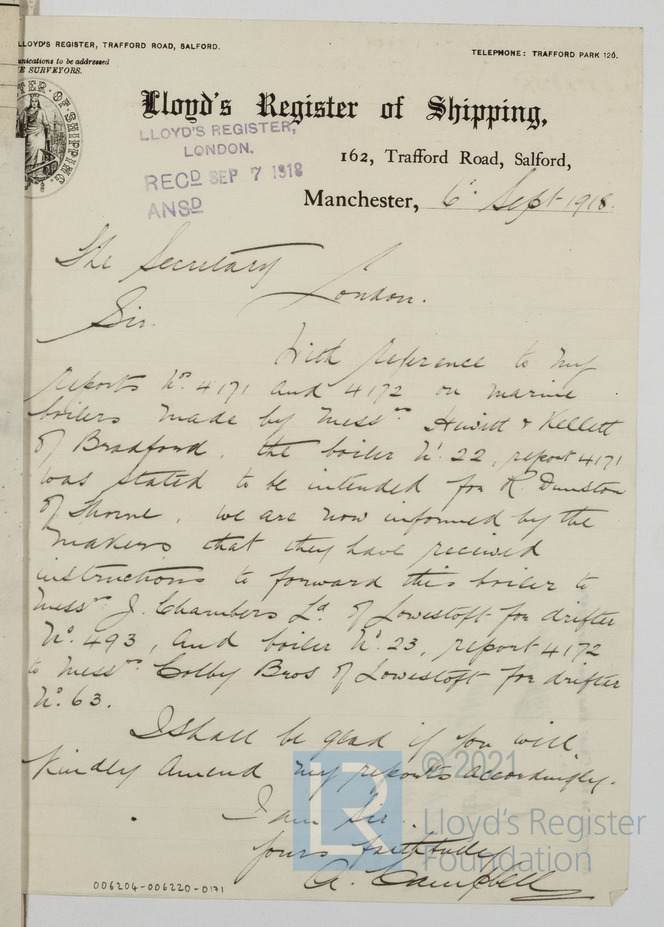 LLOYD'S REGISTER, TRAFFORD ROAD, SALFORD.
TELEPHONE: TRAFFORD PARK 126.
unications to be addressed
E SURVEYORS.
TER · OF · SHIPPING.
Lloyd's Register of Shipping,
LLOYD'S REGISTER,
LONDON.
162, Trafford Road, Salford,
RECD SEP 7 1918
ANSD
Manchester, 6th Sept 1918.
The Secretary
London.
Sir.
With reference to my
reports No. 4171 and 4172 on marine
boilers made by Messrs Hewitt & Kellett
of Bradford, the boiler No. 22, report 4171
was stated to be intended for R. Dunston
of Thorne, we are now informed by the
makers that they have received
instructions to forward this boiler to
Messrs J. Chambers Ld. of Lowestoft for drifter
No. 493, and boiler No. 23, report 4172
to Messrs Colby Bros of Lowestoft for drifter
No. 63.
I shall be glad if you will
kindly amend my reports accordingly.
I am Sir.
yours faithfully
A. Campbell
006204-006220-0171
LR
© 2021
Lloyd's Register
Foundation